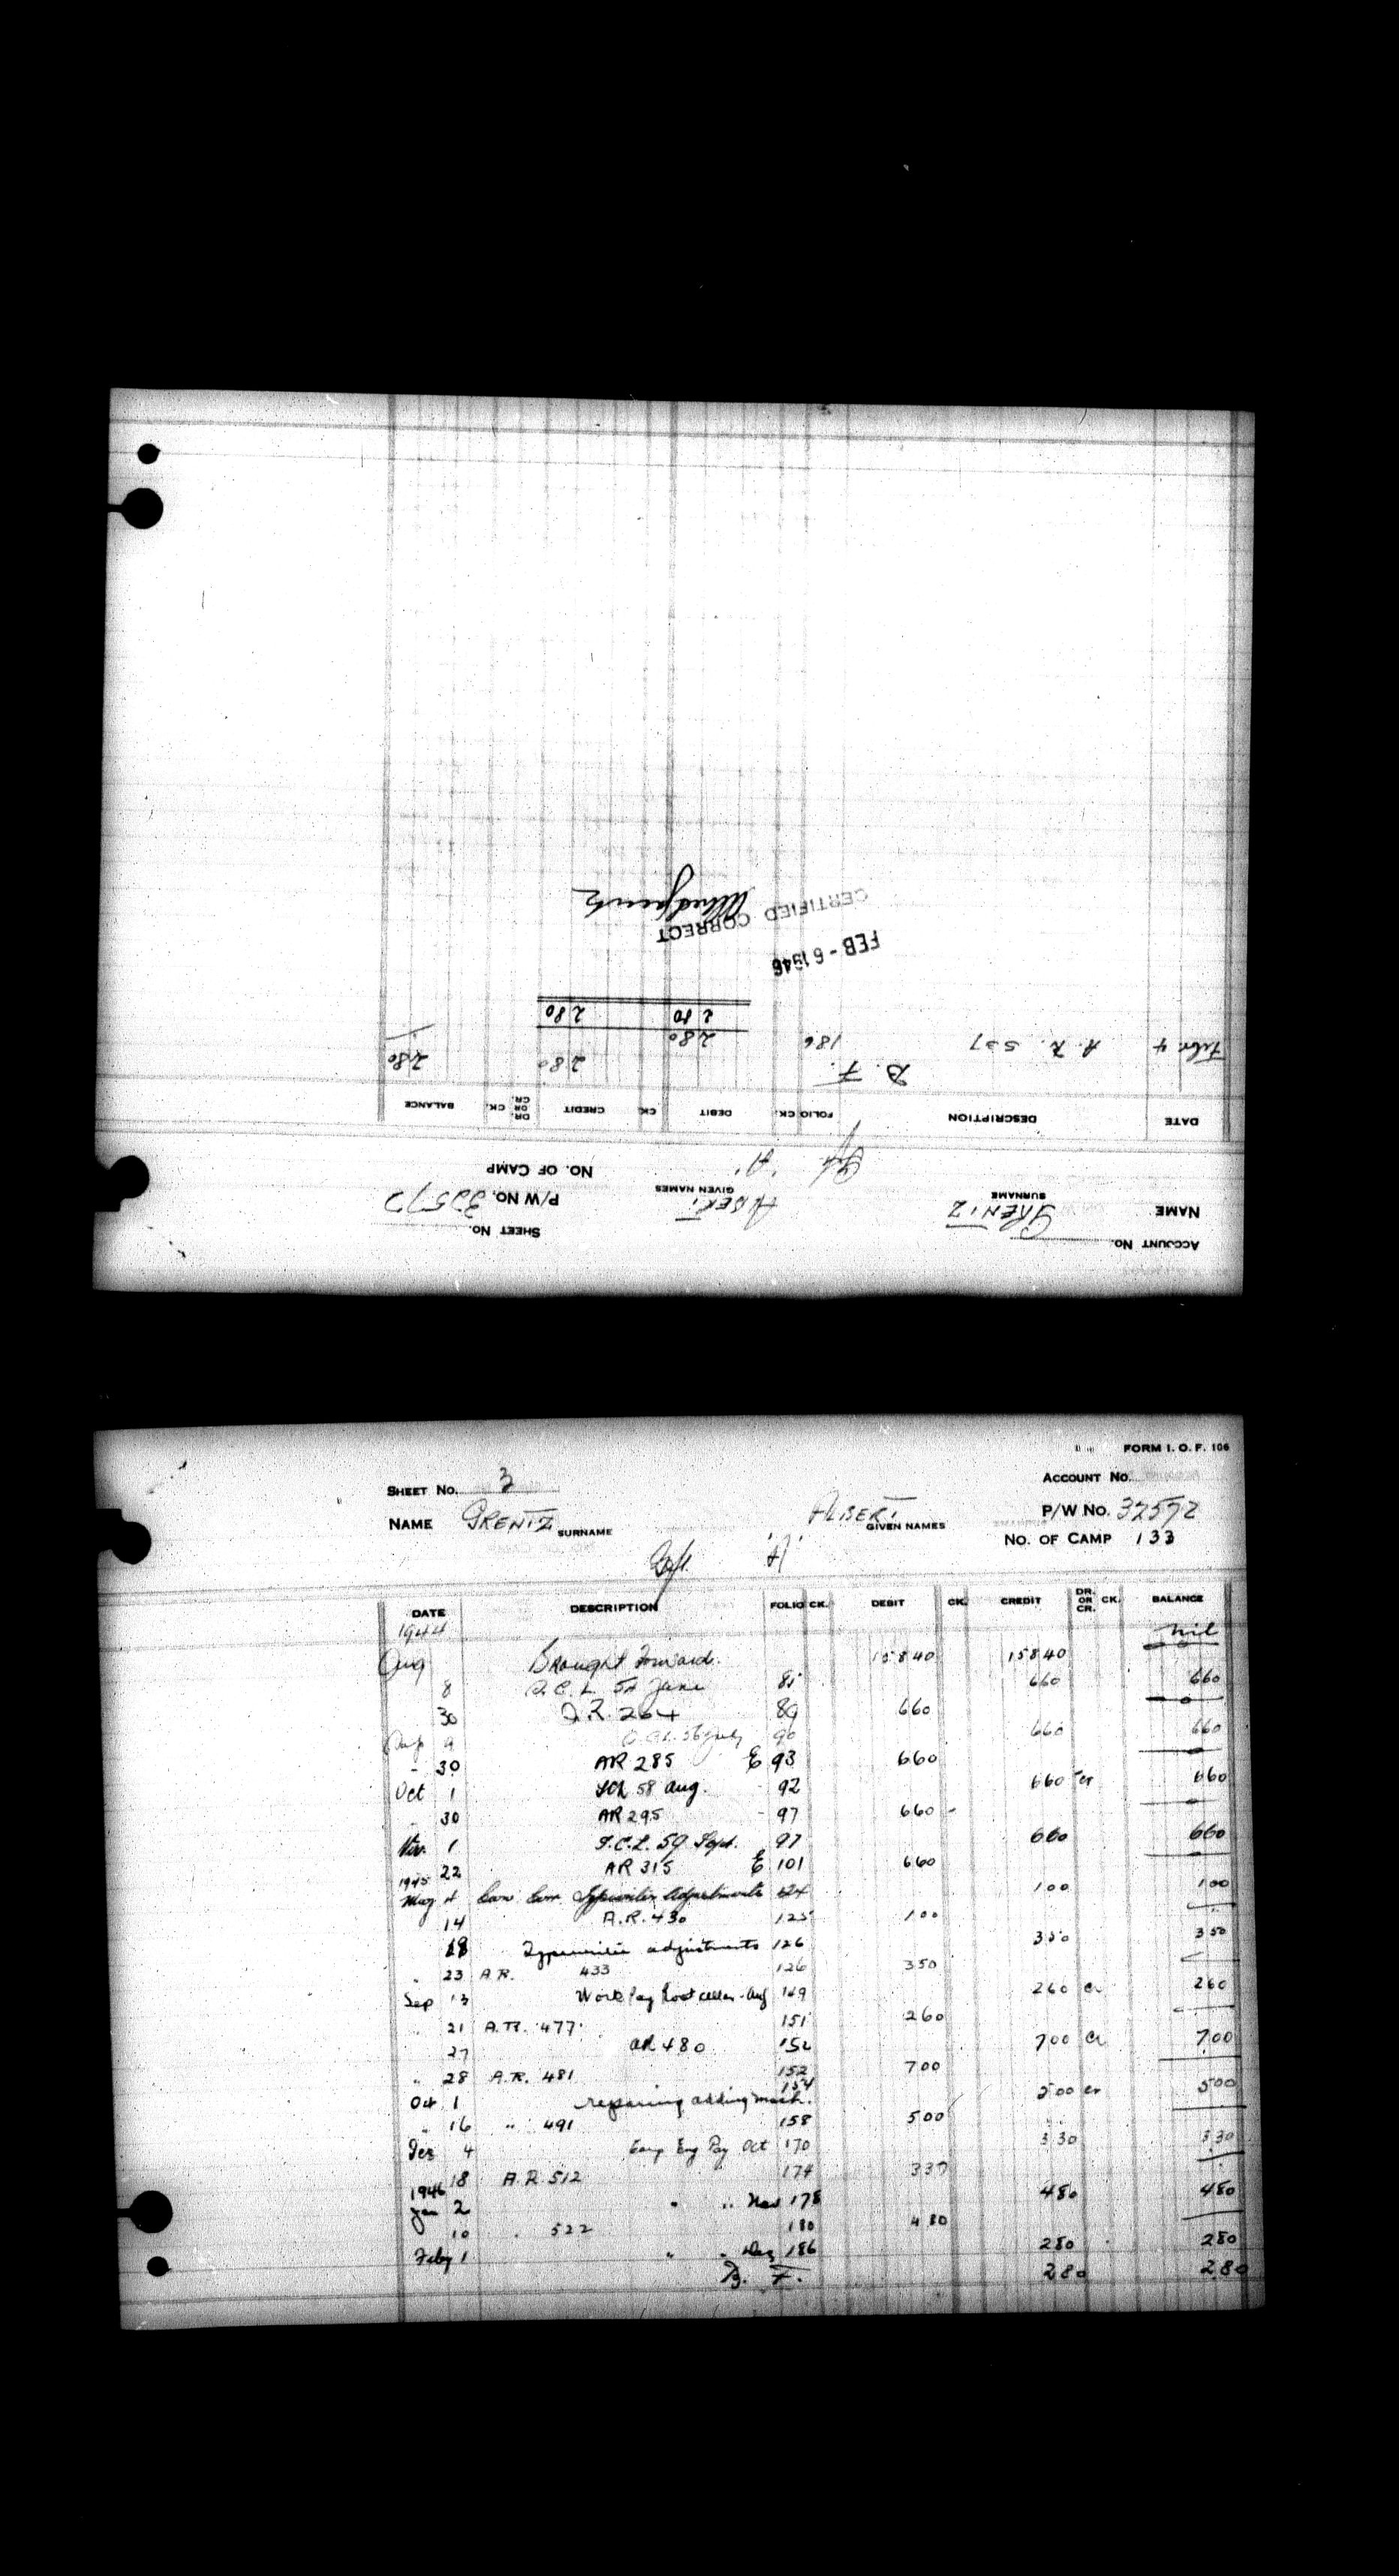 ACCOUNT No.
SHEET No.
NAME GRENTZ ALBERT P/W No. 32572
SURNAME GIVEN NAMES
'A' NO. OF CAMP
DATE DESCRIPTION FOLIO CK. DEBIT CK. CREDIT DR. OR CR. CK. BALANCE
B. F. 2 80 2 80
Febr. 4 A. R. 537 186 2 80
2 80 2 80
FEB - 6 1946
CERTIFIED CORRECT
FORM I. O. F. 106
SHEET No. 3 ACCOUNT No.
NAME GRENTZ ALBERT P/W No. 32572
SURNAME GIVEN NAMES
'A' NO. OF CAMP 133
DATE DESCRIPTION FOLIO CK. DEBIT CK. CREDIT DR. OR CR. CK. BALANCE
1944 nil
Aug Brought Forward. 158 40 158 40
8 54 June 85 6 60 6 60
30 264 89 6 60
9 56 July 90 6 60 6 60
30 AR 285 E 93 6 60
Oct 1 58 Aug. 92 6 60 cr 6 60
30 AR 295 97 6 60
Nov. 1 59 Sept. 97 6 60 6 60
22 AR 315 E 101 6 60
1945
May 4 Typewriter Adjustments 124 1 00 1 00
14 A.R. 430 125 1 00
18 Typewriter adjustments 126 3 50 3 50
" 23 A.R. 433 126 3 50
Sep 13 Work Pay - Aug 149 2 60 cr 2 60
" 21 A.R. 477 151 2 60
27 AR 480 152 7 00 cr 7 00
" 28 A.R. 481 152 7 00
Oct 1 repairing adding mach. 154 5 00 cr 5 00
" 16 " 491 158 5 00
Dec 4 Eng Pay Oct 170 3 30 3 30
18 A.R. 512 174 3 30
1946
Jan 2 " " Nov 178 4 80 4 80
10 " 522 180 4 80
Feby 1 " " Dec 186 2 80 2 80
B. F. 2 80 2 80